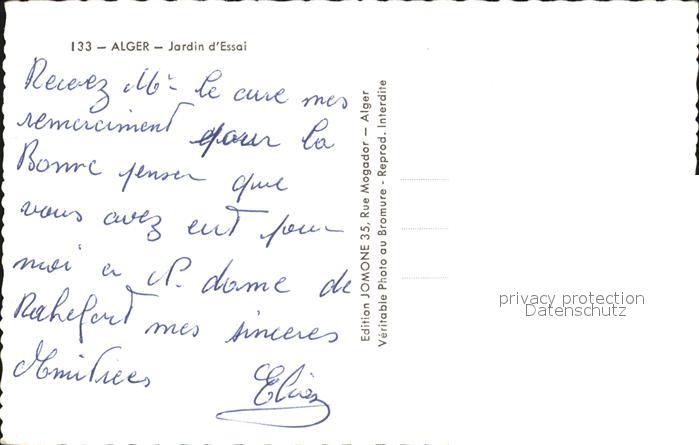 133 — ALGER — Jardin d'Essai
Recevez Mr le cure mes
remerciment pour la
Bonne penser que
vous avez eut pour
moi a N. dame de
Rochefort mes sinceres
Amitiees
Edition JOMONE 35, Rue Mogador — Alger
Véritable Photo au Bromure - Reprod. Interdite
privacy protection
Datenschutz